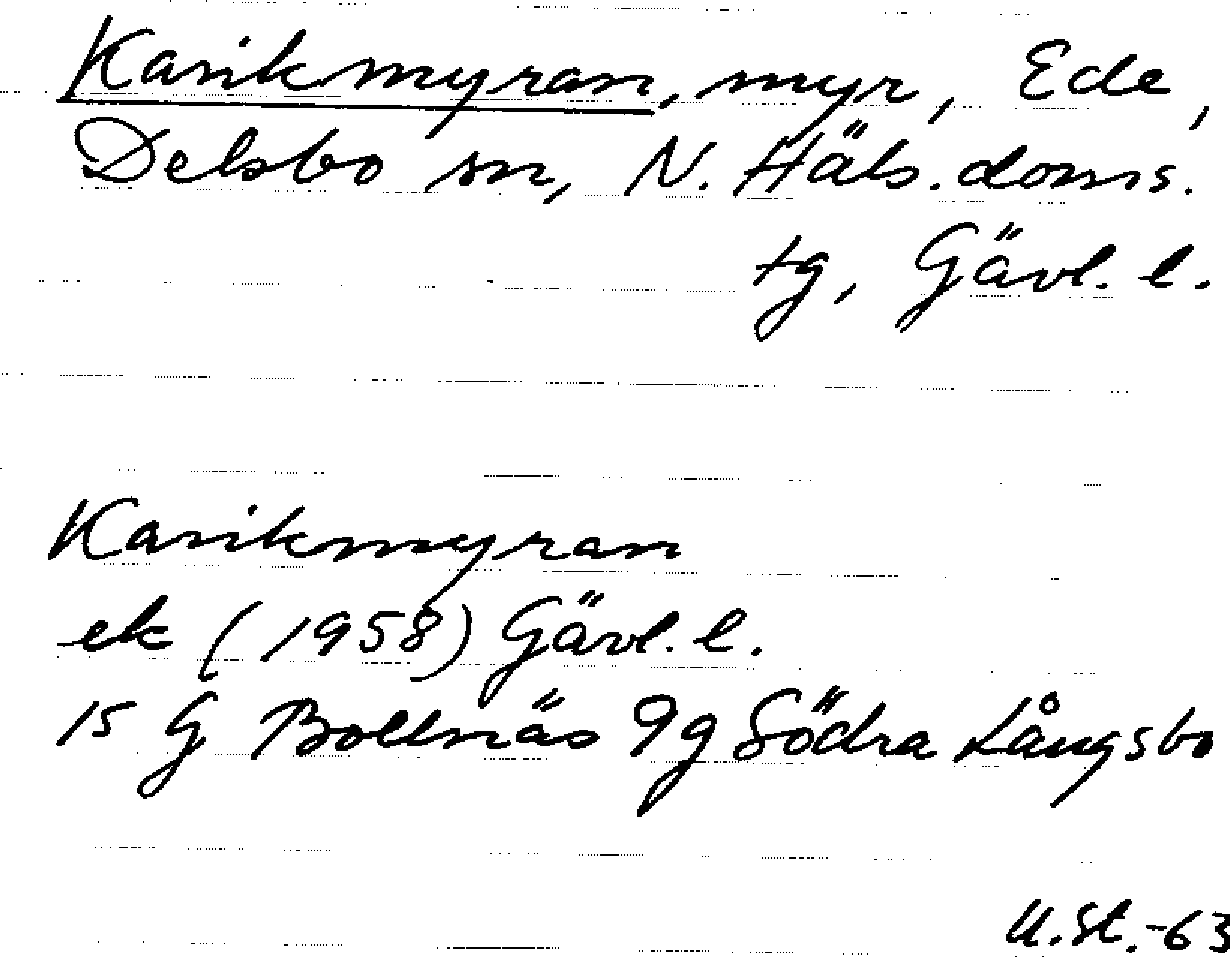 Karikmyran, myr, Ede,
Delsbo sn, N. Häls. doms.
tg, Gävl. l.
Karikmyran
ek (1958) Gävl. l.
15 G Bollnäs 9g Södra Långsbo
U.St.-63